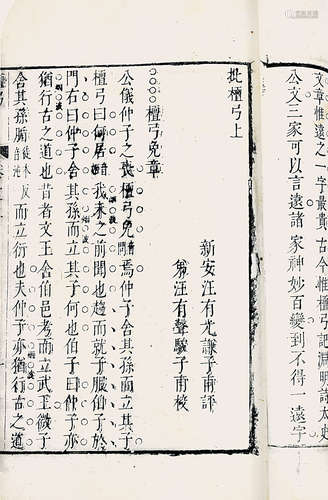 文章惟遠之一字最貴古今惟檀弓記淵
公文三家可以言遠諸家神妙百變到不得一遠字
批檀弓上
新安汪有光謙子甫評
弟汪有聲駿子甫校
檀弓免章
公儀仲子之喪檀弓免焉仲子舍其孫而立其子
檀弓曰何居我未之前聞也趨而就子服伯子於
門右曰仲子舍其孫而立其子何也伯子曰仲子亦
猶行古之道也昔者文王舍伯邑考而立武王微子
舍其孫腯而立衍也夫仲子亦猶行古之道